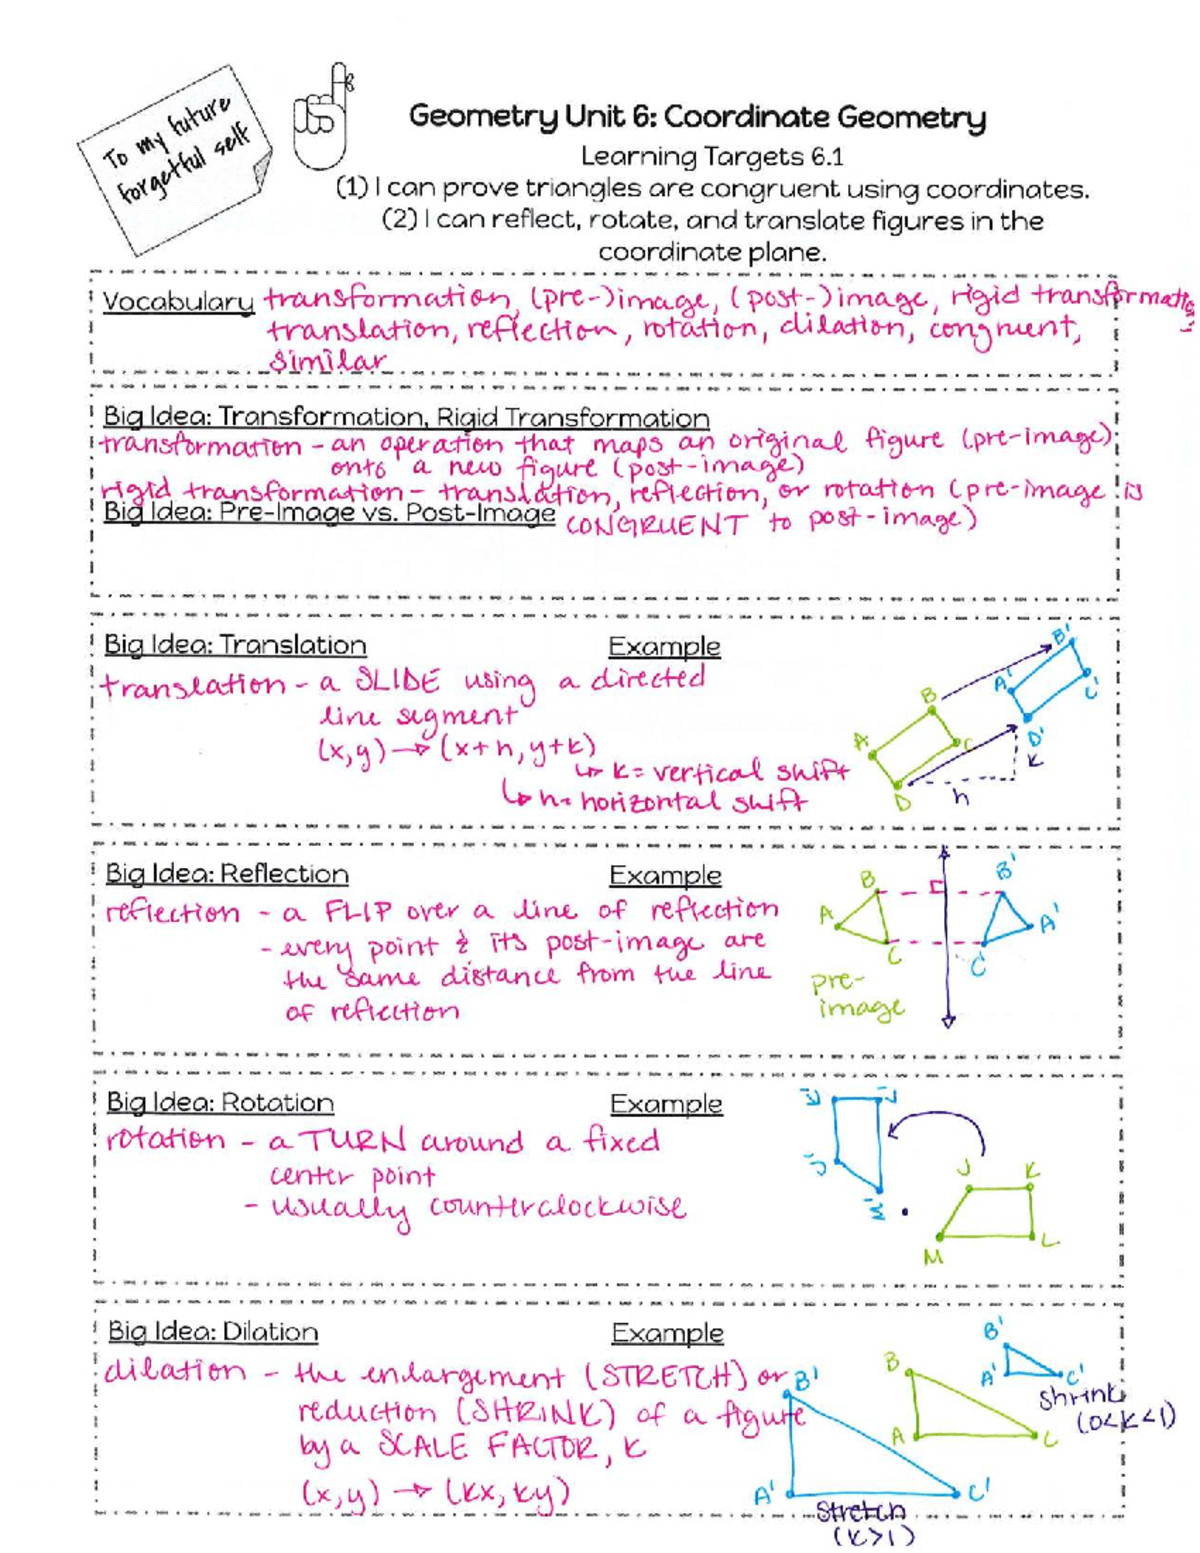 To my future
forgetful self
Geometry Unit 6: Coordinate Geometry
Learning Targets 6.1
(1) I can prove triangles are congruent using coordinates.
(2) I can reflect, rotate, and translate figures in the
coordinate plane.
Vocabulary transformation, (pre-)image, (post-)image, rigid transformation,
translation, reflection, rotation, dilation, congruent,
similar
Big Idea: Transformation, Rigid Transformation
transformation - an operation that maps an original figure (pre-image)
onto a new figure (post-image)
rigid transformation - translation, reflection, or rotation (pre-image is
Big Idea: Pre-Image vs. Post-Image CONGRUENT to post-image)
Big Idea: Translation Example
translation - a SLIDE using a directed
line segment
(x,y) → (x+h, y+k)
↳ k = vertical shift
↳ h = horizontal shift
B'
A'
C'
B
D'
A
C
k
D
h
Big Idea: Reflection Example
reflection - a FLIP over a line of reflection
- every point & its post-image are
the same distance from the line
of reflection
B
B'
A
A'
C
C'
pre-
image
Big Idea: Rotation Example
rotation - a TURN around a fixed
center point
- usually counterclockwise
J'
M'
J
K
L
M
Big Idea: Dilation Example
dilation - the enlargement (STRETCH) or
reduction (SHRINK) of a figure
by a SCALE FACTOR, k
(x,y) → (kx, ky)
B'
A'
C'
Stretch
(k>1)
B
A
C
B'
A'
C'
Shrink
(0<k<1)